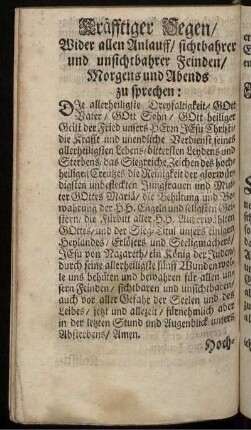 Kräfftiger Segen/
Wider allen Anlauff/ sichtbahrer
und unsichtbahrer Feinden/
Morgens und Abends
zu sprechen:
DIe allerheiligste Dreyfaltigkeit/ GOtt
Vater/ GOtt Sohn/ GOtt heiliger
Geist der Fried unsers HErrn JEsu Christi/
die Krafft und unendliche Verdienst seines
allerheiligsten Lebens/ bittersten Leydens und
Sterbens/ das Siegreiche Zeichen des hoch-
heiligen Creutzes/ die Reinigkeit der glorwür-
digsten unbefleckten Jungfrauen und Mut-
ter GOttes Mariä/ die Behütung und Ver-
wahrung der HH. Engeln und seligsten Gei-
stern/ die Fürbitt aller HH. Auserwöhlten
GOttes/ und der Sieg-Titul unsers einigen
Heylandes/ Erlösers und Seeligmachers/
JEsu von Nazareth/ ein König der Juden/
durch seine allerheiligste fünff Wunden wol-
le uns behüten und bewahren für allen un-
sern Feinden/ sichtbaren und unsichtbaren/
auch vor aller Gefahr der Seelen und des
Leibes/ jetzt und allezeit/ fürnehmlich aber
in der letzten Stund und Augenblick unsers
Absterbens/ Amen.
Hoch-